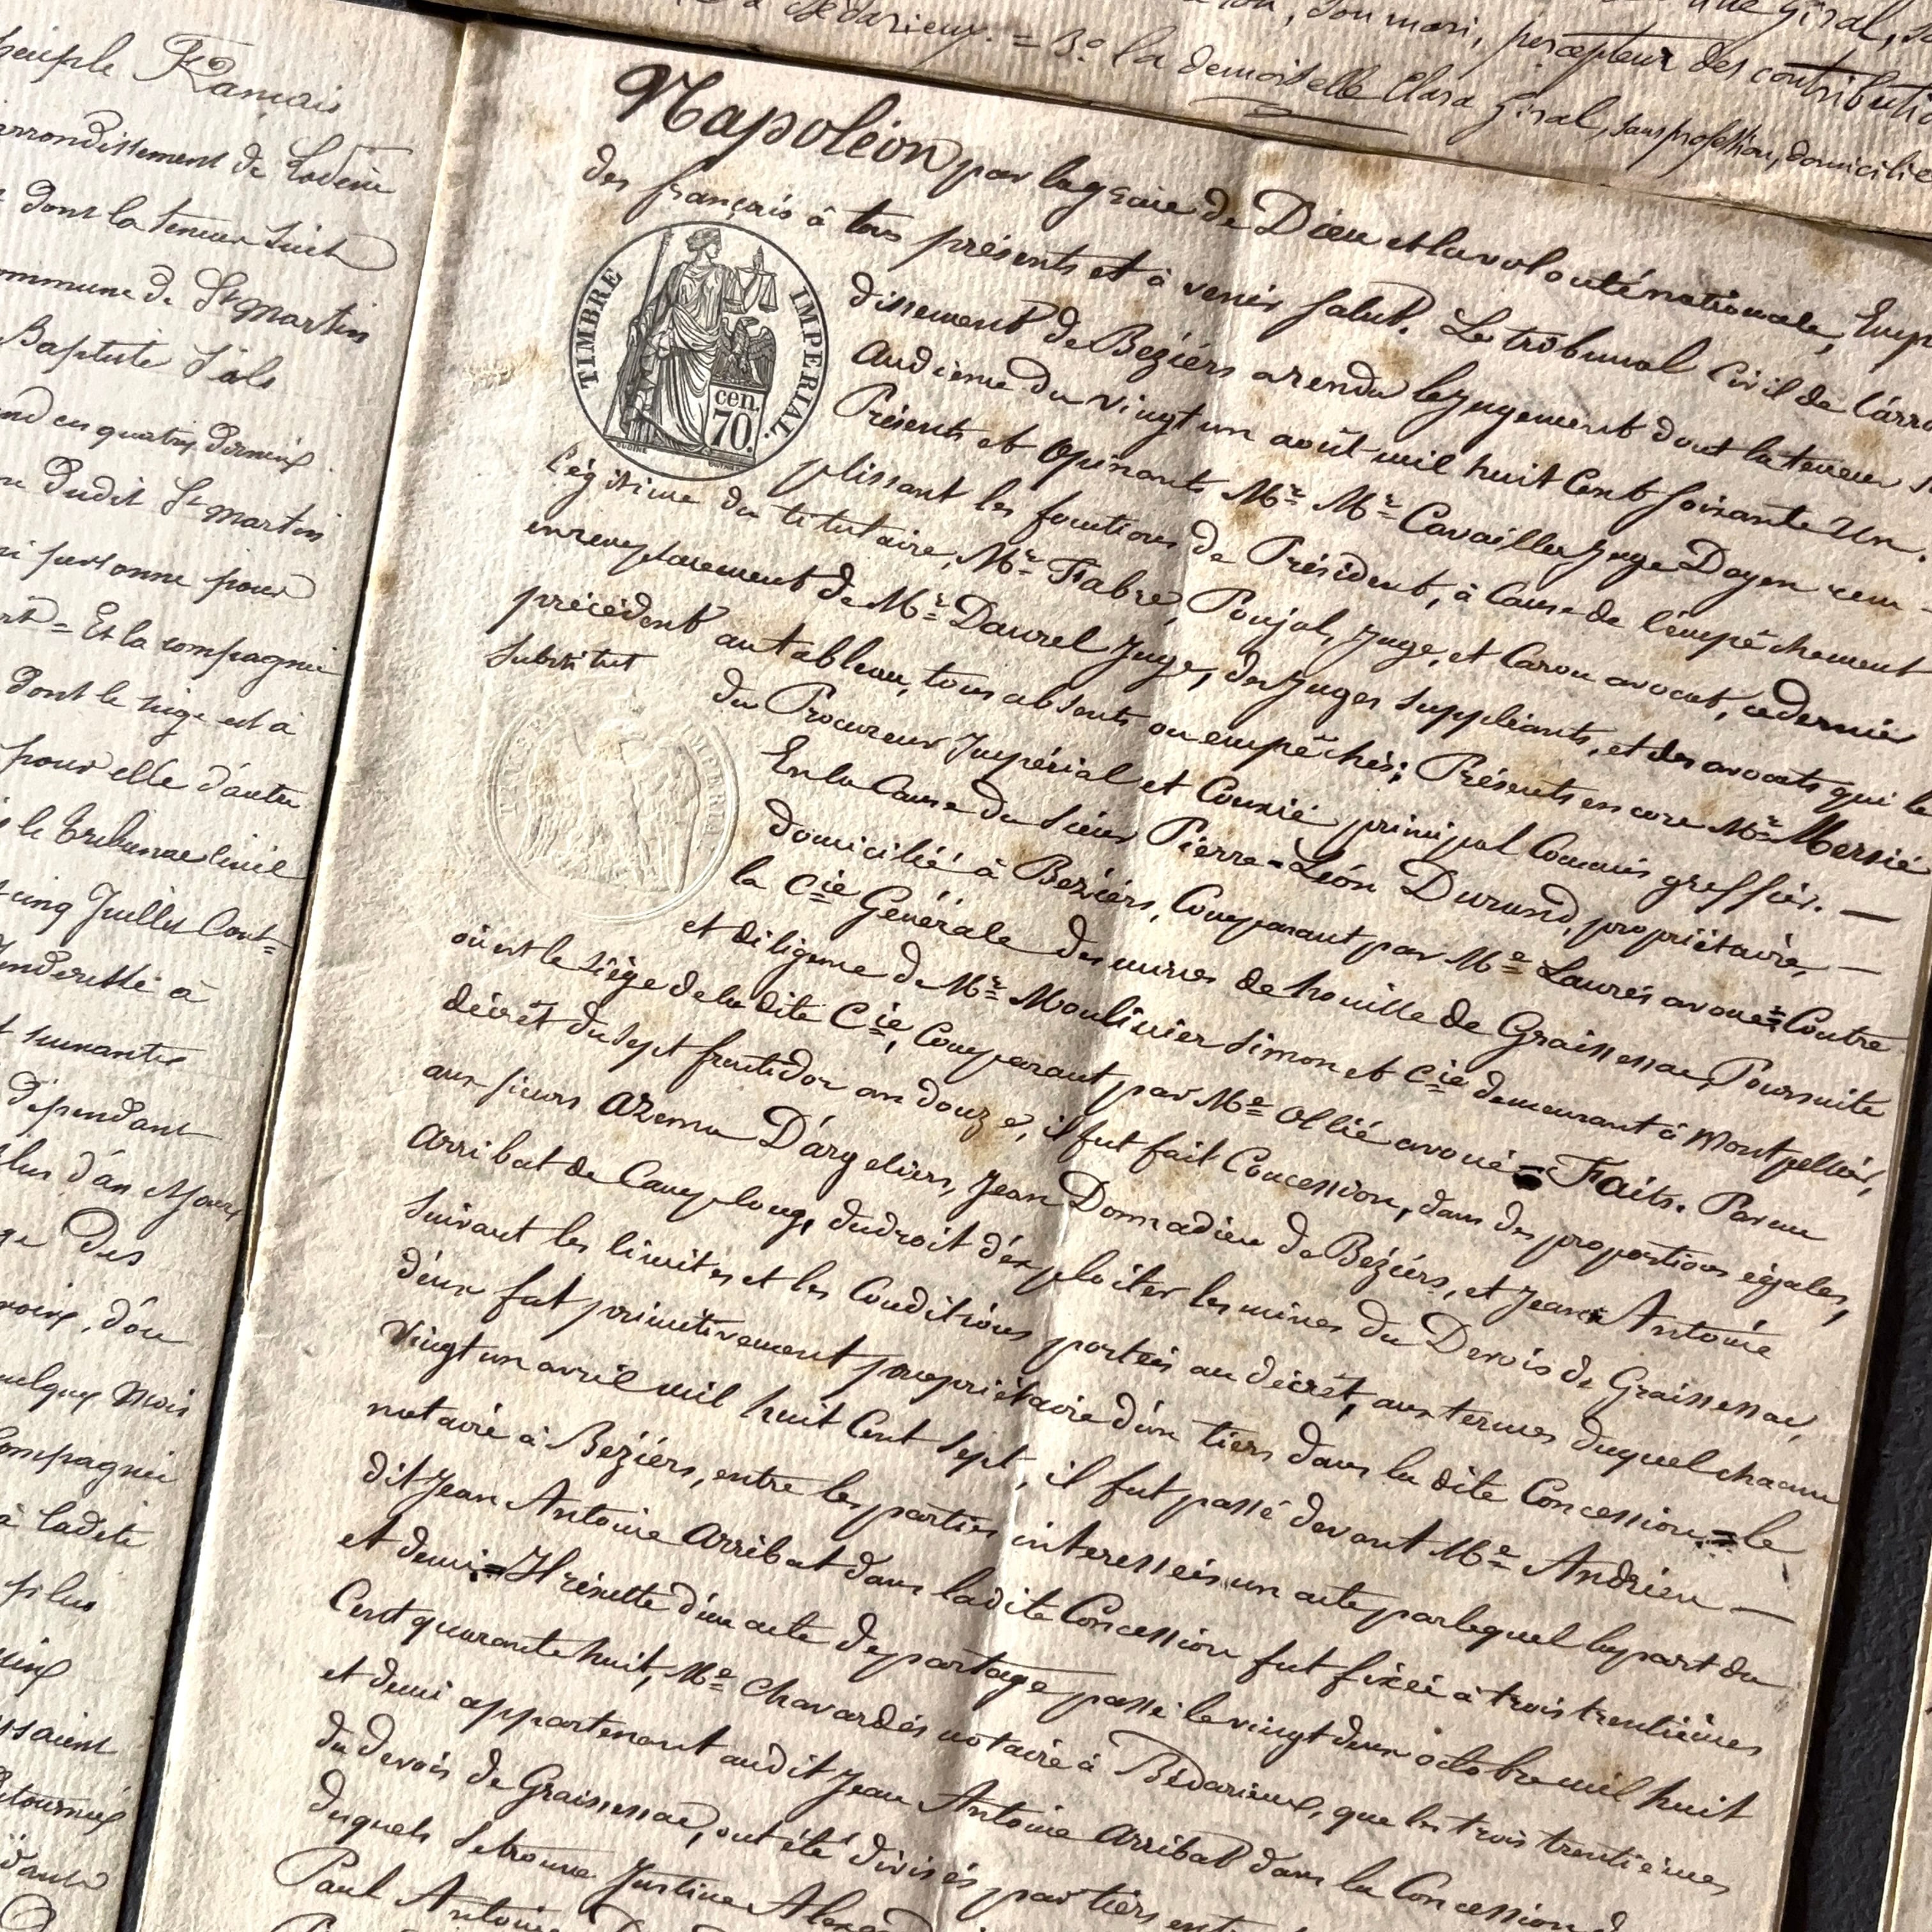 Peuple Français
arrondissement de Lodève
dont la teneur suit
commune de St martin
Baptiste
en quatre
dudit St martin
personne pour
= Et la compagnie
dont le siège est à
pour elle d'autre
le tribunal Civil
cinq Juillet
à
suivantes
dépendant
d'un
des
d'ou
quelques Mois
Compagnie
à ladite
plus
son mari, percepteur des contributions
= 3° la demoiselle Clara Giral, sans profession, domiciliée
Napoléon par la grace de Dieu et la volonté nationale, Emp
des français à tous présents et à venir Salut. Le tribunal Civil de l'arro
dissement de Beziérs a rendu le jugement dont la teneur
Audience du vingt un août mil huit Cent Soixante Un.
Présents et Opinants Mr Mr Cavaillès Juge Doyen rem-
plissant les fonctions de Président, à Cause de l'empêchement
légitime du titulaire, Mr Fabre, Poujol, Juge, et Carou avocat, ce dernier
en remplacement de Mr Daurel Juge, des Juges Suppléants, et des avocats qui le
précédent au tableau, tous absents ou empêchés; Présents encore Mr Mersié
Substitut du Procureur Impérial et Couxié principal Commis greffier. —
En la Cause du Sieur Pierre-Léon Durand, propriétaire, —
domicilié à Beziérs, Comparant par Me Laurés avoué = Contre
la Cie Générale des mines de houille de Graissessac, Poursuite
et diligence de Mr Moulinier Simon et Cie demeurant à Montpellier,
où est le siége de la dite Cie, Comparant par Me Ollié avoué = Faits. Par un
décret du Sept fructidor an douze, il fut fait Concession, dans des proportions égales,
aux Sieurs Azema D'argeliers, Jean Donnadieu de Béziers, et Jean Antoine
Arribat de Camplong, du droit d'exploiter les mines du Devois de Graissessac,
Suivant les limites et les Conditions portées au décret, aux termes duquel chacun
d'eux fut primitivement propriétaire d'un tiers dans la dite Concession. = le
Vingt un avril mil huit Cent Sept, il fut passé devant Me Andrieu —
notaire à Beziérs, entre les parties interessées, un acte par lequel la part du
dit Jean Antoine Arribat dans ladite Concession fut fixée à trois trentièmes
et demi. = Il résulte d'un acte de partage passé le vingt deux octobre mil huit
Cent quarante huit, Me Chavardés notaire à Bédarieux, que les trois trentièmes
et demi appartenant audit Jean Antoine Arribat dans la Concession
du devois de Graissessac, ont été divisés par tiers
duquel se trouve Justine
Paul Antoine
TIMBRE IMPERIAL
cen.
70.